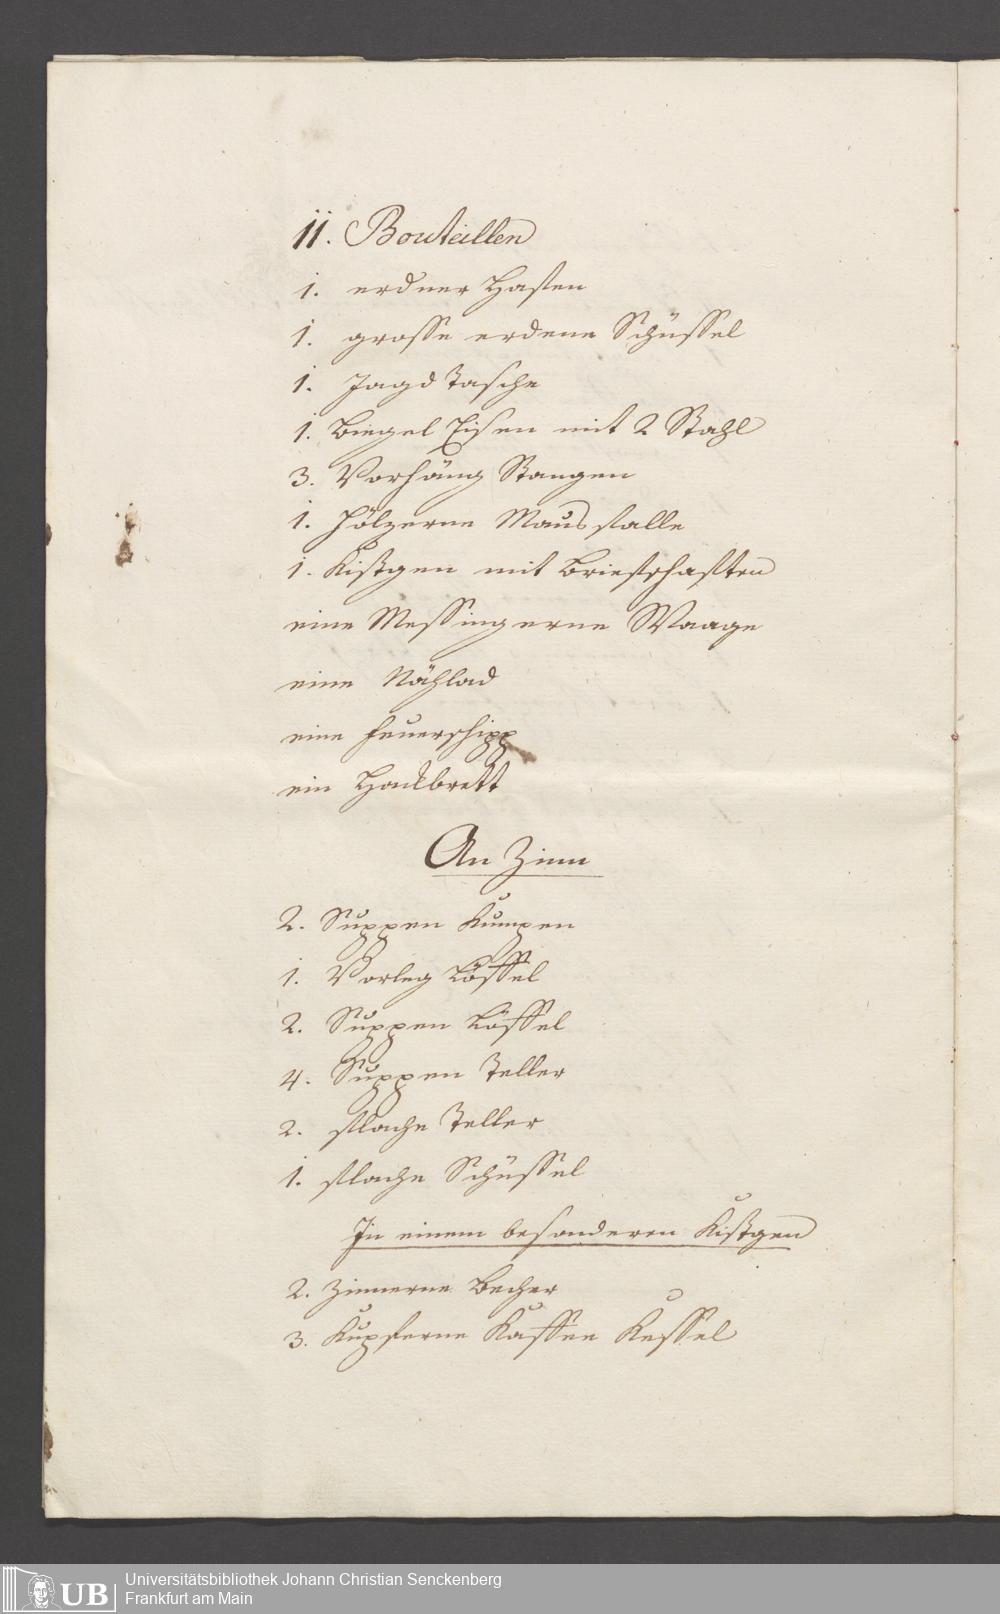 11. Bouteillen
1. erdner Hafen
1. grosse erdene Schüssel
1. Jagd Tasche
1. Biegel Eisen mit 2 Stahl
3. Vorhäng Stangen
1. hölzerne Mausfalle
1. Kistgen mit Briefschaften
eine Messingerne Waage
eine Nählad
eine Feuerschipp
ein Hackbrett
An Zinn
2. Suppen Kumpen
1. Vorleg Löffel
2. Suppen Löffel
4. Suppen Teller
2. flache Teller
1. flache Schüssel
In einem besonderen Kistgen
2. Zinnerne Becher
3. Kupferne Kaffee Kessel
UB Universitätsbibliothek Johann Christian Senckenberg
Frankfurt am Main